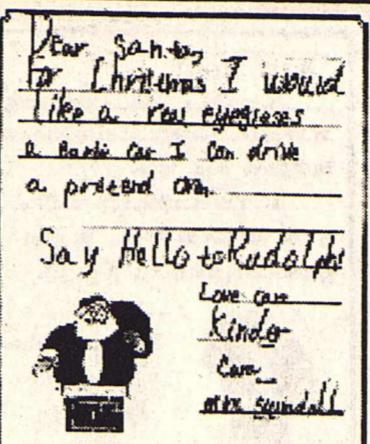 Dear Santa,
For Christmas I would
like a real eyeglases
a Barbie car I can drive
a pretend
Say Hello to Rudolph!
Love
Kinder